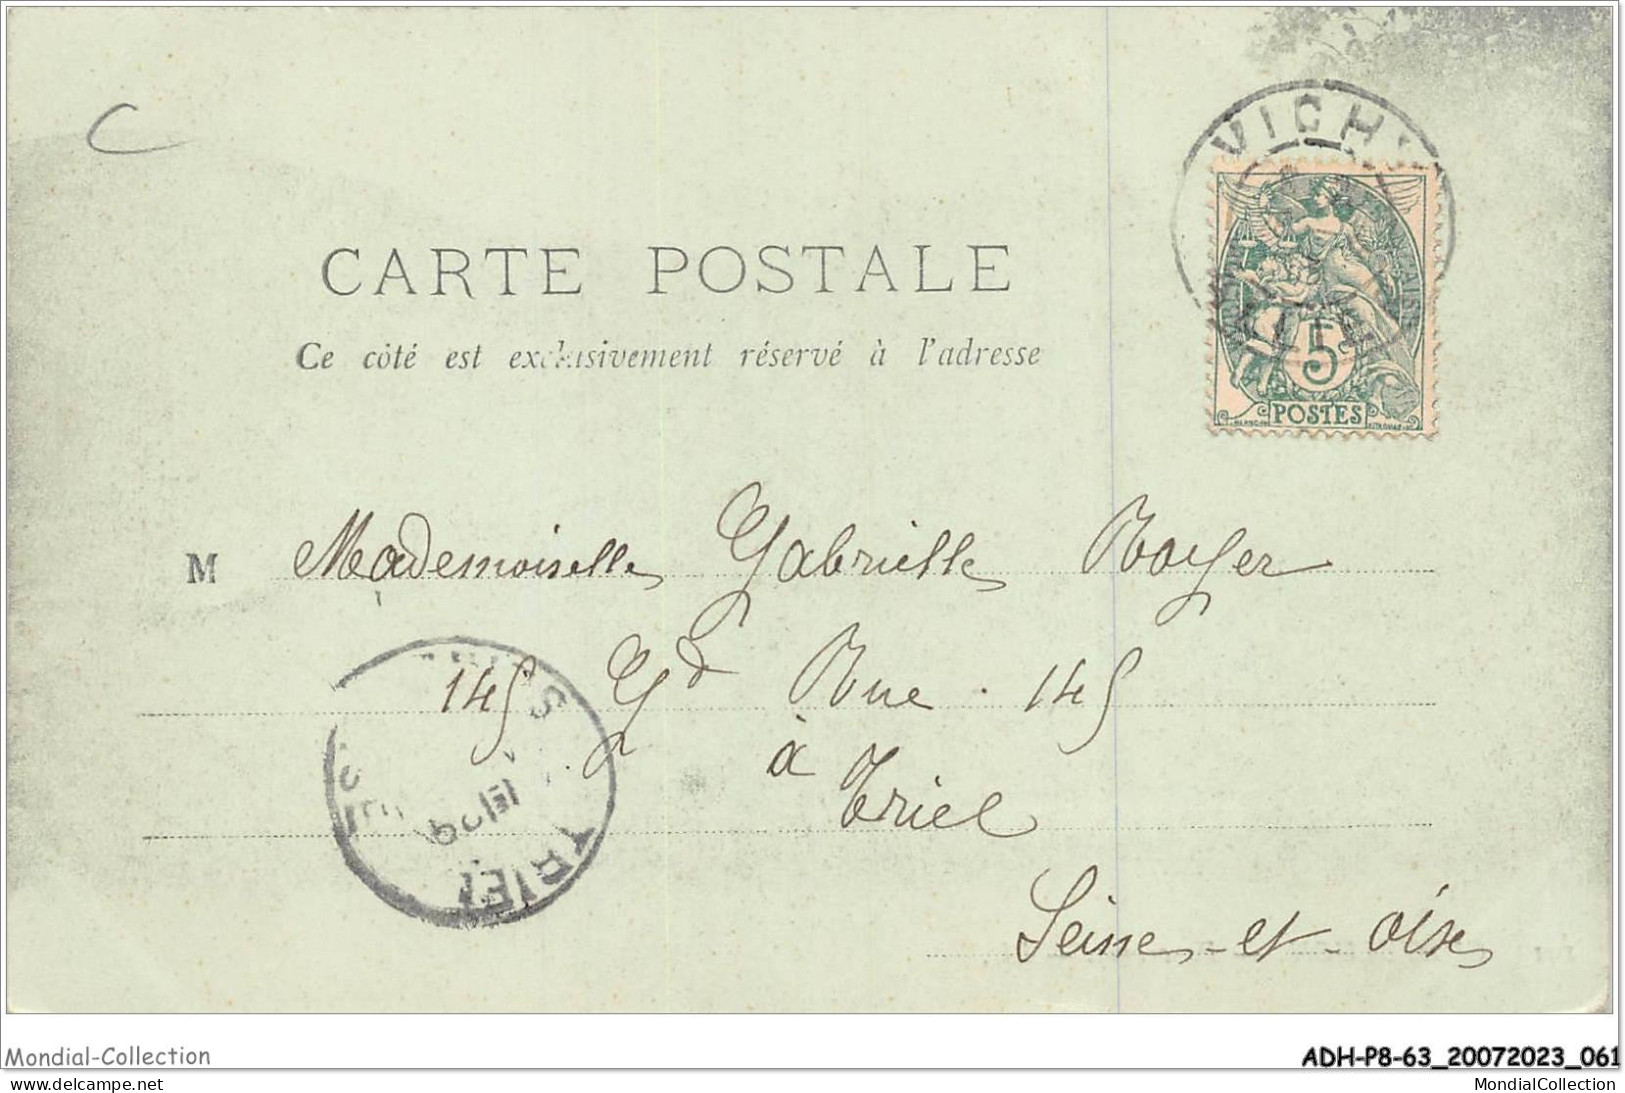 VICHY
CARTE POSTALE
Ce côté est exclusivement réservé à l'adresse
5
POSTES
M Mademoiselle Gabrielle Royer
145 Gd Rue . 145
à
Triel
Seine-et-Oise
TRIEL
Mondial-Collection
ADH-P8-63_20072023_061
© delcampe.net
MondialCollection